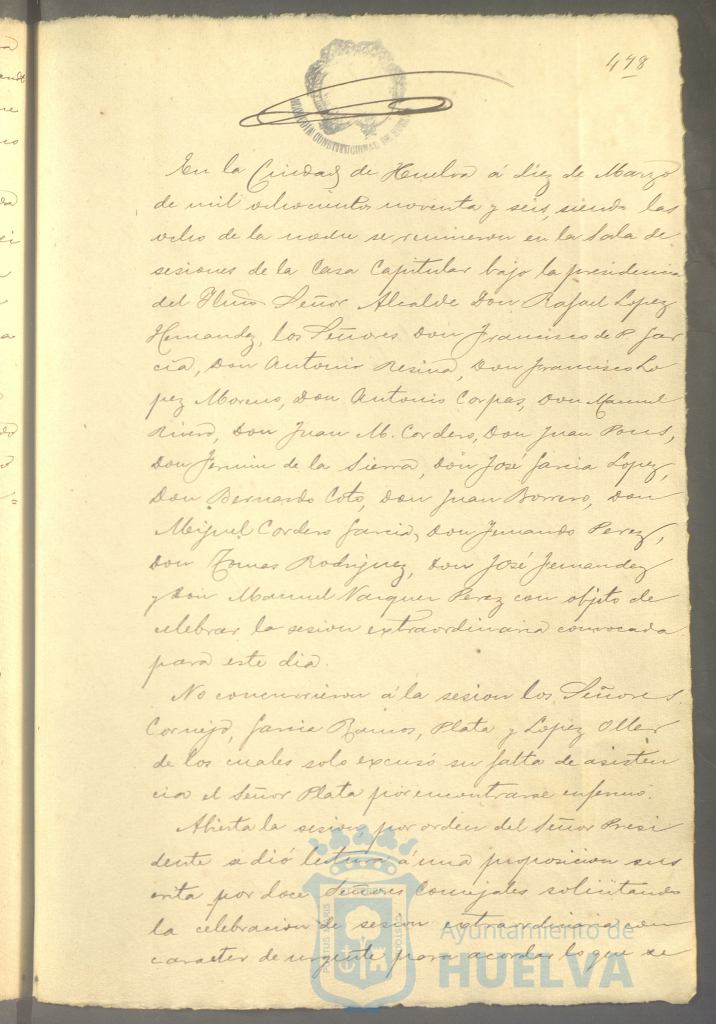 478
En la Ciudad de Huelva á diez de Marzo
de mil ochocientos noventa y seis, siendo las
ocho de la noche se reunieron en la Sala de
sesiones de la Casa Capitular bajo la presidencia
del Iltmo Señor Alcalde Don Rafael Lopez
Hernandez, los Señores Don Francisco de P. Gar
cia, Don Antonio Resina, Don Francisco Lo
pez Moreno, Don Antonio Corpas, Don Manuel
Rivero, Don Juan M. Cordero, Don Juan Pons,
Don Fermin de la Sierra, Don José Garcia Lopez,
Don Bernardo Coto, Don Juan Borrero, Don
Miguel Cordero Garcia, Don Fernando Perez,
Don Tomas Rodriguez, Don José Fernandez
y Don Manuel Vazquez Perez con objeto de
celebrar la sesion extraordinaria convocada
para este dia.
No concurrieron á la sesion los Señores
Cornejo, Garcia Ramos, Plata y Lopez Oller
de los cuales solo excusó su falta de asisten
cia el Señor Plata por encontrarse enfermo.
Abierta la sesion, por orden del Señor Presi
dente se dió lectura á una proposicion sus
crita por doce Señores Concejales solicitando
la celebracion de sesion extraordinaria con
caracter de urgente para acordar lo que se
Ayuntamiento de
HUELVA